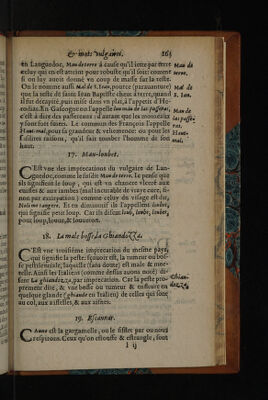 & mots vulgaires. 265
en Languedoc, Mau de terre à cause qu'il iette par terre
celuy qui en est atteint pour robuste qu'il soit: comme
si on luy auoit donné vn coup de masse sur la teste.
On le nomme aussi Mal de S. Iean, pource (parauanture)
que la teste de saint Iean Baptiste cheut à terre, quand
il fut decapité, puis mise dans vn plat, à l'appetit d'Herodias.
En Gascogne on l'appelle lou mau de las passeras,
c'est à dire des passereaux: d'autant que les moineaux
en sont affligez. Le commun des François l'appelle
Haut-mal, pour sa grandeur & vehemence: ou pour les
raisons, qu'il fait tomber l'homme de son
haut.
Mau de terre.
Mal de S. Iean.
Mau de las passeras.
Haut-mal.
17. Mau-loubet.
C'Est vne des imprecations du vulgaire de Languedoc,
comme le susdit Mau de terre. Ie pense que
ils signifient le loup, qui est vn chancre vlceré aux
cuisses & aux iambes (mal incurable de vraye cure, sinon
par extirpation) comme celuy du visage est dit,
Noli me tangere. Et en diminutif ils l'appellent loubet,
qui signifie petit loup. Car ils disent loub, loubet,
pour loup, louue, & louueton.
18. La male bosse, La Ghianduzza.
C'Est vne troisiéme imprecation du mesme pays,
qui signifie la peste: sçauoir est, la tumeur ou bosse
pestilentiale, laquelle (sans doute) est male & mortelle.
Ainsi les Italiens (comme dessus auons noté) disent
la Ghianduzza, par imprecation. Car la peste proprement
dite, & vne bube ou tumeur & enfleure en
quelque glande (ghiande en Italien) de celles qui sont
au col, aux aisselles, & aux aines.
Ghianduzza.
19. Escannar.
CAnne est la gargamelle, ou le sifflet par ou nous
respirons. Ceux qu'on estouffe & estrangle, sont
l ij